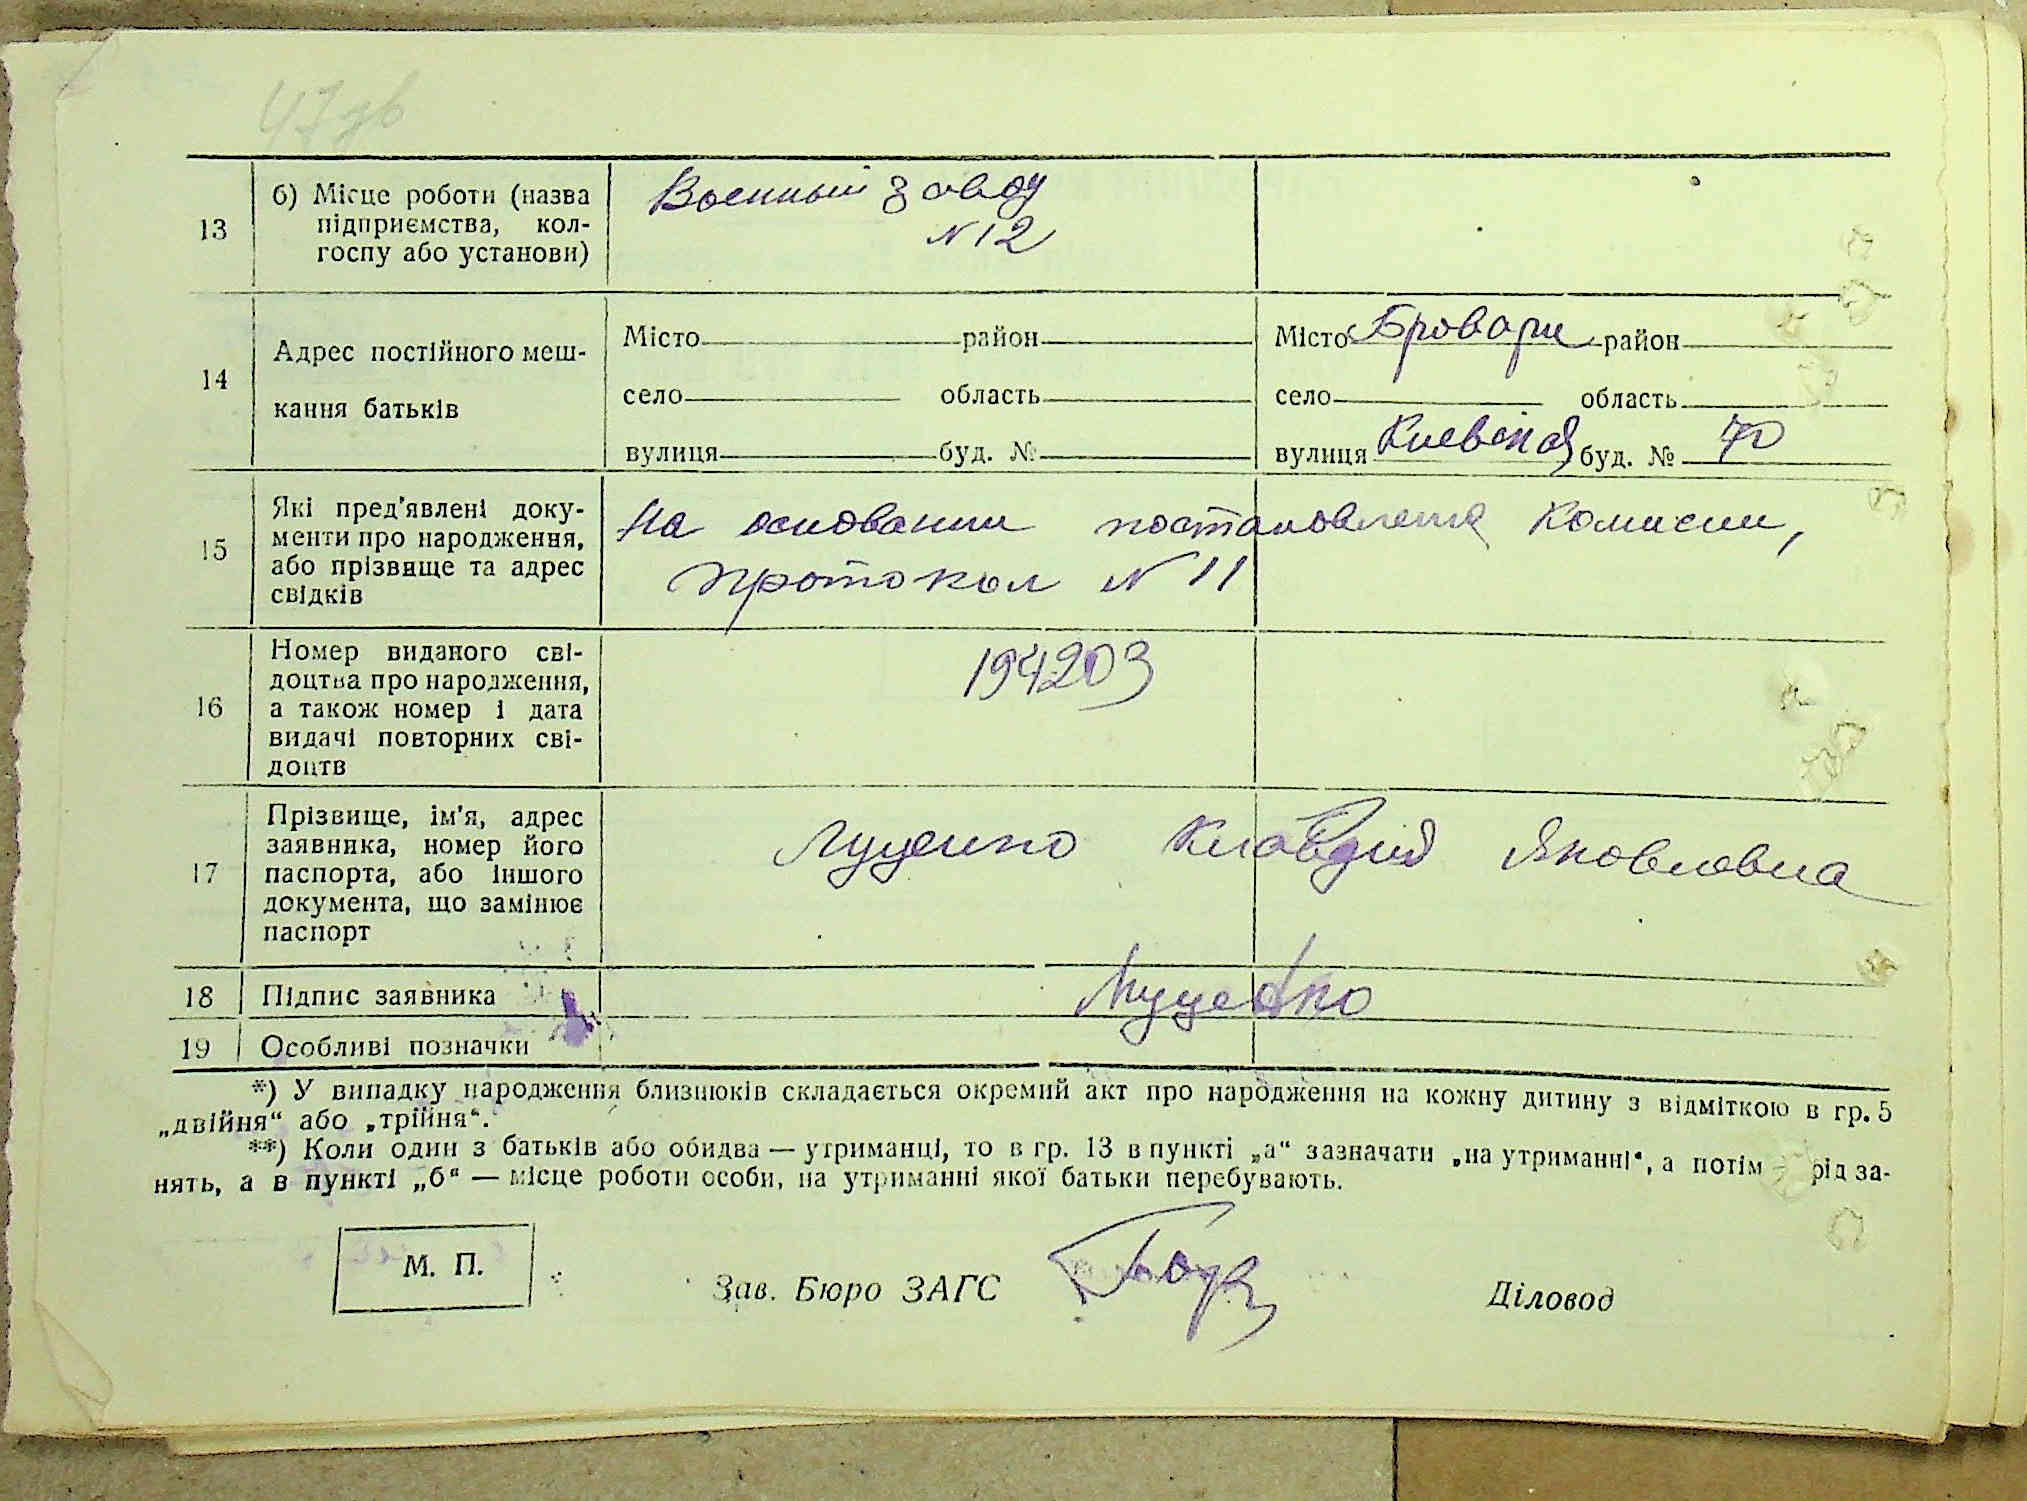 47 зв
13 б) Місце роботи (назва
підприємства, кол-
госпу або установи)
Военный завод
N 12
14 Адрес постійного меш-
кання батьків
Місто район
село область
вулиця буд. №
Місто Бровари район
село область
вулиця Киевская буд. № 70
15 Які пред'явлені доку-
менти про народження,
або прізвище та адрес
свідків
На основании постановления комисии,
протокол N 11
16 Номер виданого сві-
доцтва про народження,
а також номер і дата
видачі повторних сві-
доцтв
194203
17 Прізвище, ім'я, адрес
заявника, номер його
паспорта, або іншого
документа, що замінює
паспорт
Луценко Клавдия Яковлевна
18 Підпис заявника
Луценко
19 Особливі позначки
*) У випадку народження близнюків складається окремий акт про народження на кожну дитину з відміткою в гр. 5
„двійня“ або „трійня“.
**) Коли один з батьків або обидва — утриманці, то в гр. 13 в пункті „а“ зазначати „на утриманні“, а потім рід за-
нять, а в пункті „б“ — місце роботи особи, на утриманні якої батьки перебувають.
М. П.
Зав. Бюро ЗАГС
Діловод